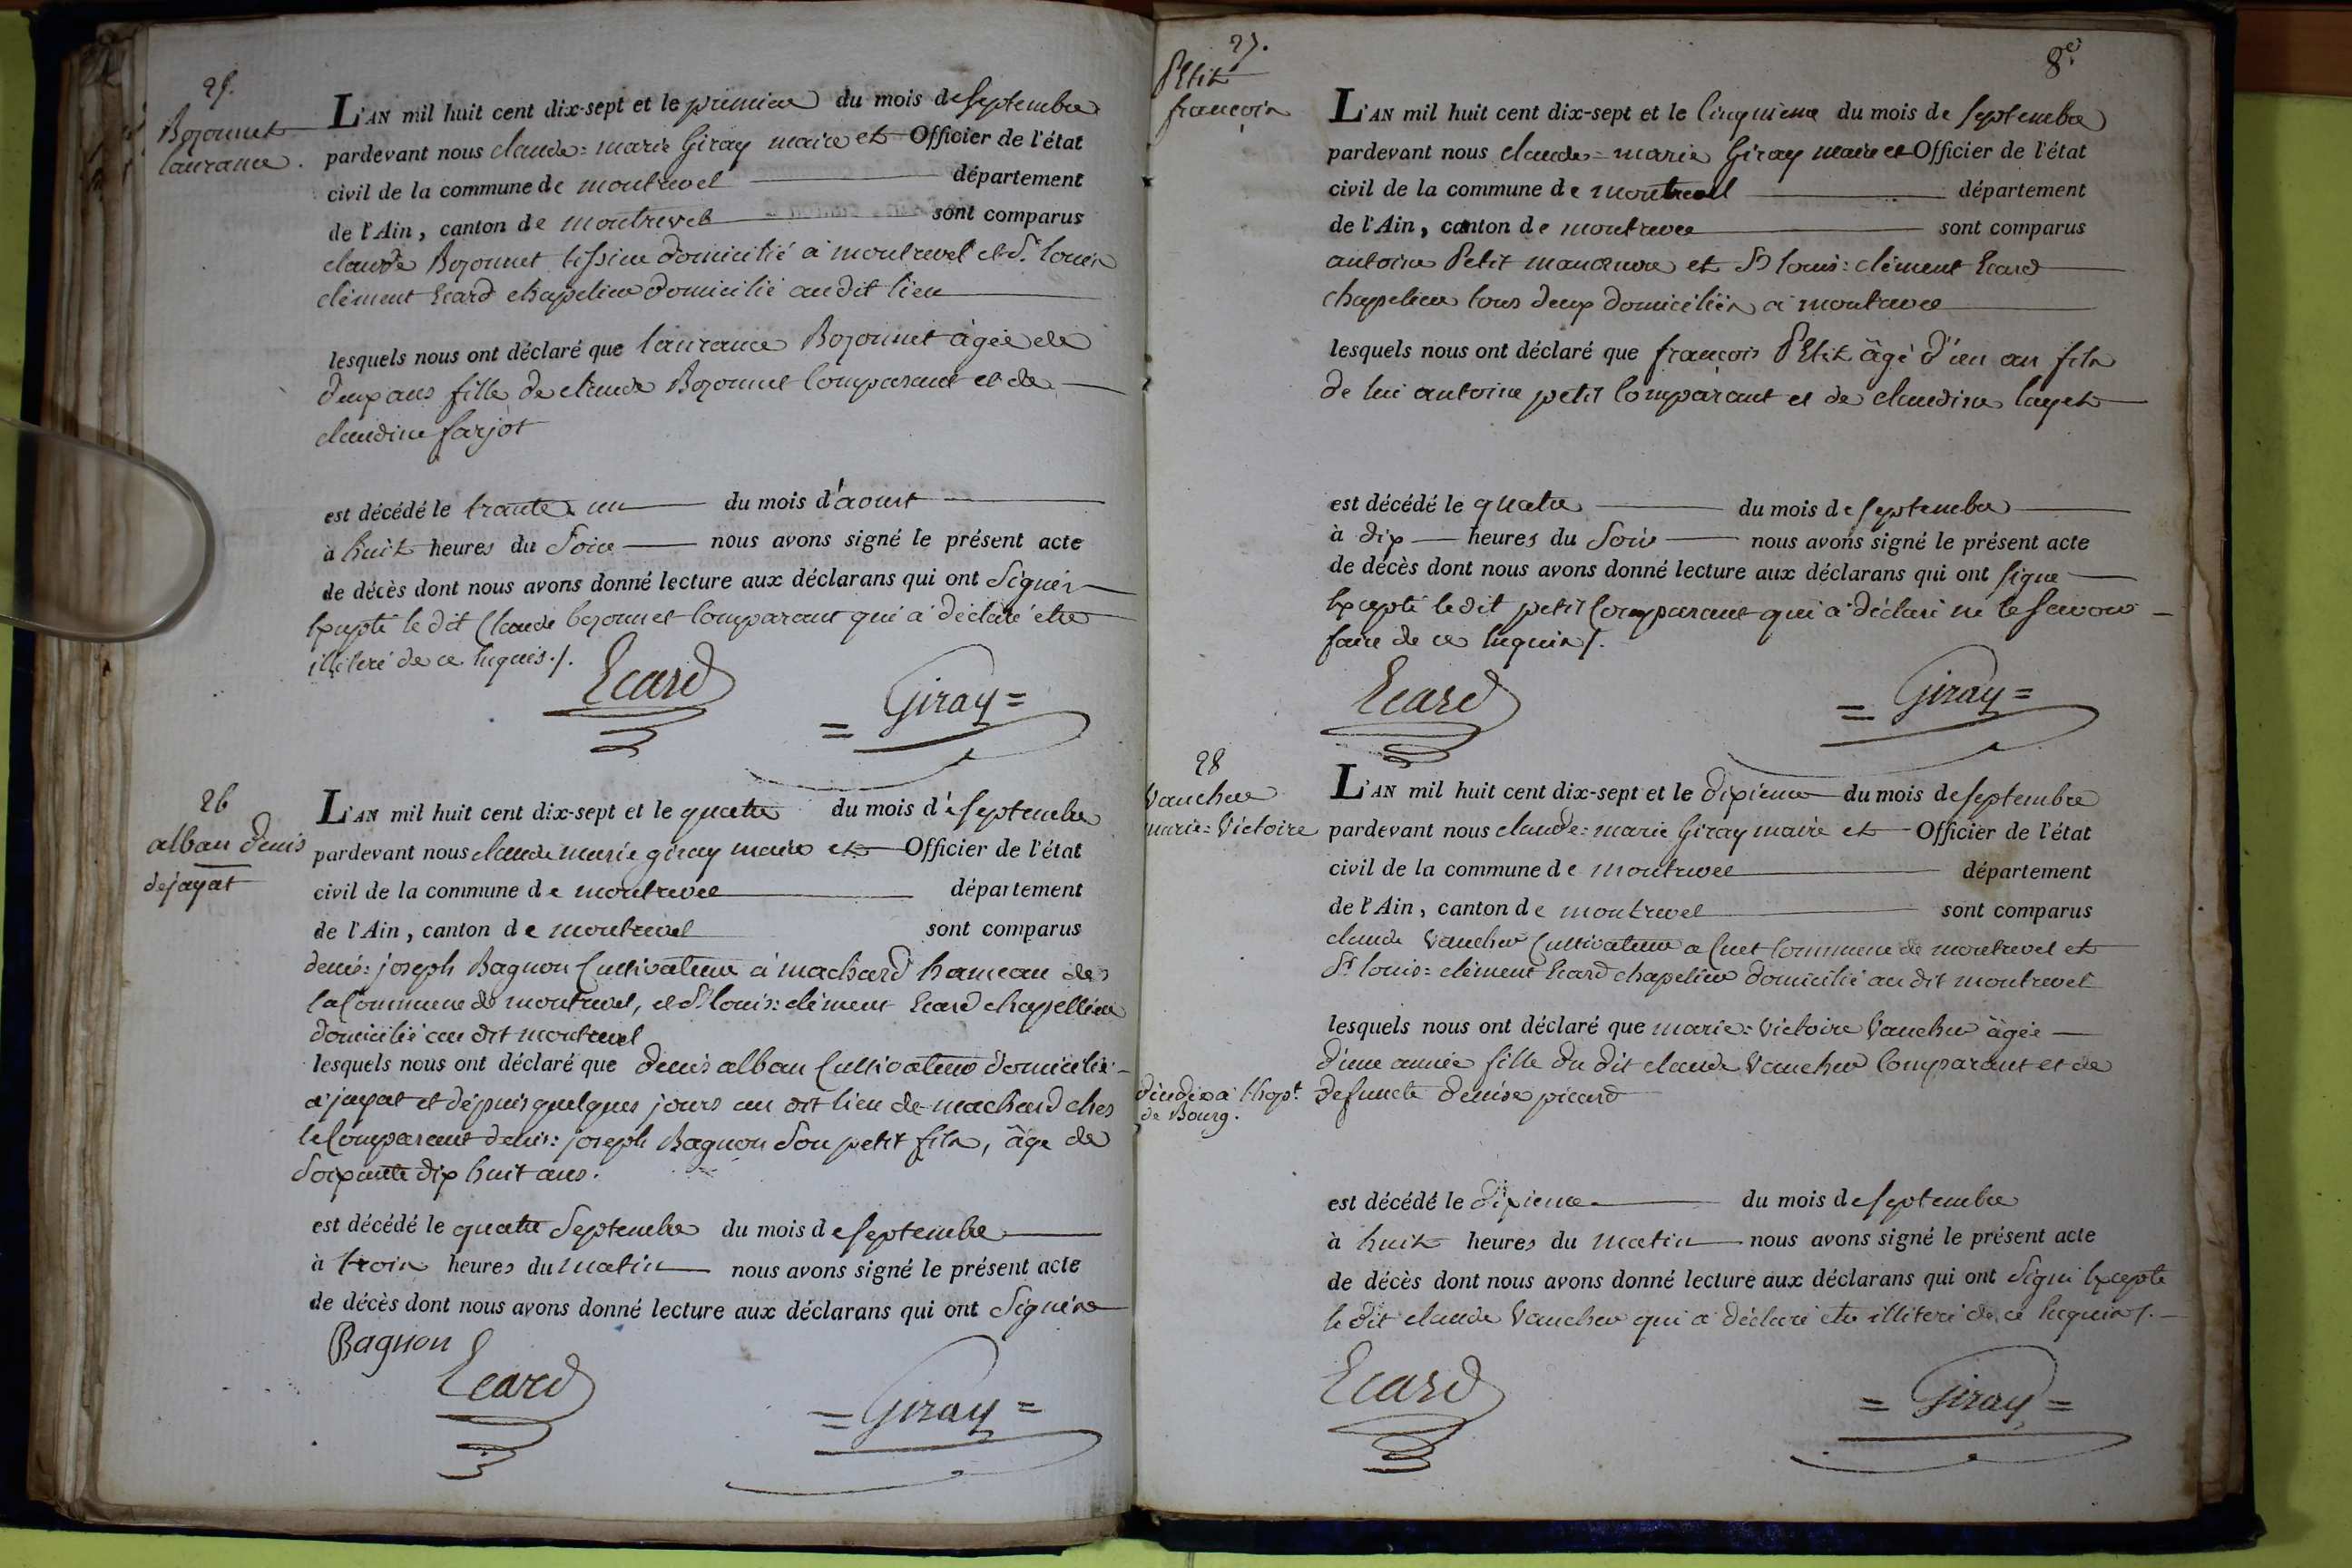 25.
Bozonnet
laurance.
L'AN mil huit cent dix-sept et le premier du mois de septembre
pardevant nous claude=marie Giray maire et Officier de l'état
civil de la commune de montrevel département
de l'Ain, canton de montrevel sont comparus
claude Bozonnet tissier domicilié à montrevel et St. louis
clément Ecard chapelier domicilié audit lieu
lesquels nous ont déclaré que laurance Bozonnet âgée de
deux ans fille de claude Bozonnet Comparant et de
claudine farjot
est décédé le trante un du mois d'aoust
à huit heures du soir nous avons signé le présent acte
de décès dont nous avons donné lecture aux déclarans qui ont signés
Excepté le dit Claude bozonnet comparant qui a déclaré être
illiteré de ce requis./.
Ecard
=Giray=
26
alban denis
de jayat
L'AN mil huit cent dix-sept et le quatre du mois d'e septembre
pardevant nous claude marie giray maire et Officier de l'état
civil de la commune de montrevel département
de l'Ain, canton de montrevel sont comparus
denis=joseph Bagnon Cultivateur à machard hameau de
la Commune de montrevel, et St louis=clément Ecard chapellier
domicilié au dit montrevel
lesquels nous ont déclaré que denis alban Cultivateur domicilié
à jayat et depuis quelques jours au dit lieu de machard ches
le Comparant denis=joseph Bagnon son petit fils, âge de
soixante dix huit ans.
est décédé le quatre septembre du mois de septembre
à trois heures du matin nous avons signé le présent acte
de décès dont nous avons donné lecture aux déclarans qui ont signés
Bagnon
Ecard
=Giray=
27.
Petit
françois
8e.
L'AN mil huit cent dix-sept et le Cinquieme du mois de septembre
pardevant nous claude=marie Giray maire et Officier de l'état
civil de la commune de montrevel département
de l'Ain, canton de montrevel sont comparus
antoine Petit manœuvre et St louis=clément Ecard
chapelier tous deux domiciliés à montrevel
lesquels nous ont déclaré que françois Petit âgé d'un an fils
de lui antoine petit Comparant et de claudine layet
est décédé le quatre du mois de septembre
à dix heures du soir nous avons signé le présent acte
de décès dont nous avons donné lecture aux déclarans qui ont signe
Excepté ledit petit Comparant qui a déclaré ne le savoir
faire de ce requis/.
Ecard
=Giray=
28
Vaucher
marie=Victoire
L'AN mil huit cent dix-sept et le dixieme du mois de septembre
pardevant nous claude=marie Giray maire et Officier de l'état
civil de la commune de montrevel département
de l'Ain, canton de montrevel sont comparus
claude Vaucher Cultivateur a Cuet Commune de montrevel et
St louis=clément Ecard chapelier domicilié au dit montrevel
lesquels nous ont déclaré que marie=Victoire Vaucher âgée
d'une année fille du dit claude Vaucher Comparant et de
défuncte denise picard
à l'hopt.
de Bourg.
est décédé le dixieme du mois de septembre
à huit heures du matin nous avons signé le présent acte
de décès dont nous avons donné lecture aux déclarans qui ont signé Excepte
le dit claude Vaucher qui a déclaré etre illiteré de ce requis/.
Ecard
=Giray=